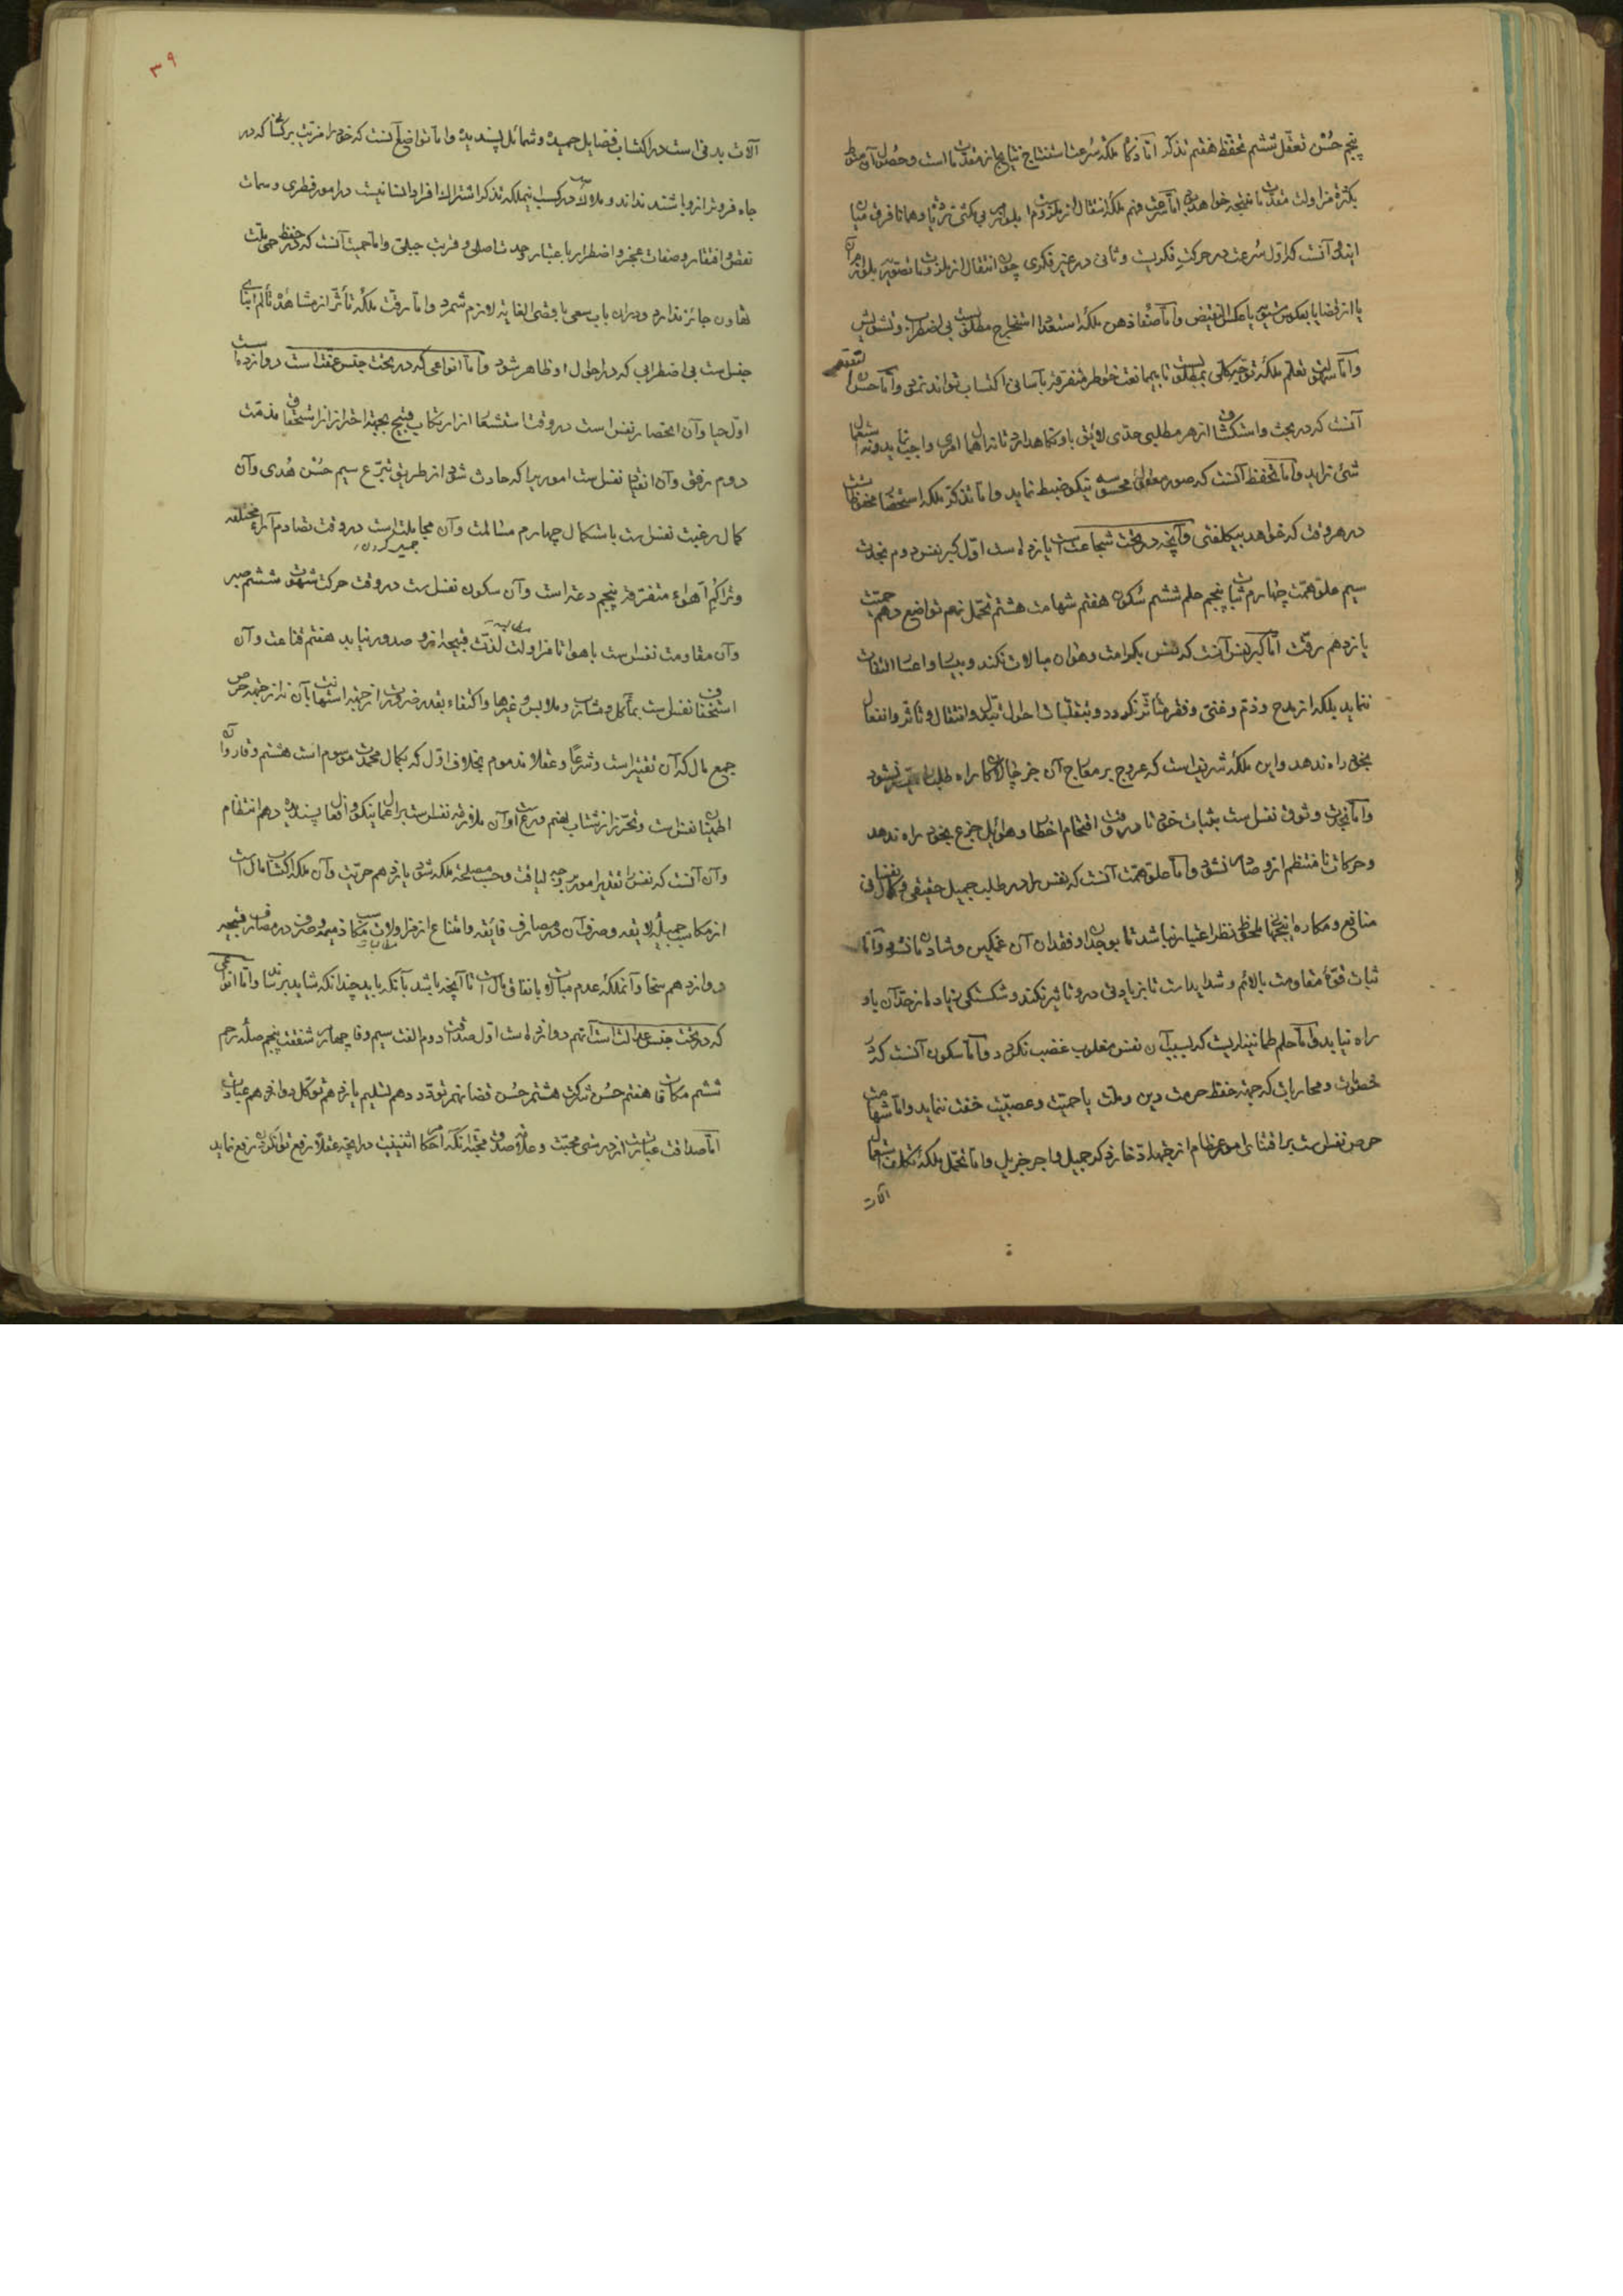 پنجم حُسْن تعقّل ششم تحفّظ هفتم تذکّر امّا ذکا ملکه سُرعت استنتاج نتایج از مقدّمات است و حصول آن منوط
بکثرة مزاولت مقدّمات منتجه خواهد بود امّا سرعت فهم ملکۀ انتقال از ملزومات بلوازم بی مکثی زیاد و همانا فرق میان
ایندو آنست که اوّل سُرعت در حرکتِ فکریست و ثانی در غیر فکری چون انتقال از ملزومات تصوّریه بلوازم آن
یا از قضایا بعکوس مستوی یا عکس النقیض و امّا صفاء ذهن ملکۀ استعداد استخراج مطلوبست بی اضطراب و تشویش
و امّا سهولت تعلم ملکۀ توجّه کلّی بمطلوبست تا بیممانعت خواطر متفرّقه بآسانی اکتساب تواند نمود و امّا حسن تعقّل
آنست که در بحث و استکشاف از هر مطلبی حدّی لایق باو نگاهدارد تا نه اهمال امری واجب نماید و نه استعمال
شیئ زاید و امّا تحفّظ آنست که صور معقوله محسوسه نیکو ضبط نماید و امّا تذکّر ملکۀ استحضار محفوظاتست
در هر وقت که خواهد بیکلفتی و آنچه در تحت شجاعت است یازده است اوّل کبر نفس دوم نجدت
سیم علوّ همّت چهارم ثبات پنجم حلم ششم سُکون هفتم شهامت هشتم تحمّل نهم تواضع دهم حمیّت
یازدهم رقّت امّا کبر نفس آنست که نفس بکرامت و هوان مبالات نکند و بیسار و اعسار التفات
ننماید بلکه از مدح و ذمّ و غنی و فقر متأثّر نکردد و بتقلّبات احوال تبدّل و انتقال و تأثّر و انفعال
بخود راه ندهد و این ملکۀ شریفه است که عروج بر معارج آن جز چالاکان راه طلب را میسّر نشود
و امّا نجدت وثوق نفس است بثبات خود تا در وقت اقتحام اخطار و هوایل جزع بخود راه ندهد
و حرکات نامنتظم ازو صادر نشود و امّا علوّ همّت آنست که نفس را در طلب جمیل حقیقی و کمال نفسانی
منافع و مکاره اینجهان ملحوظ نظر اعتبار نباشد تا بوجدان و فقدان آن غمکین و شادمان نشود و امّا
ثبات قوّۀ مقاومت بالآم و شدایدست تا بزیادتی درو تاثیر نکند و شکستکی زیاده از حدّ آن باو
راه نیابد و امّا حلم طمانینه ایست که بسبب آن نفس مغلوب غضب نکردد و امّا سکون آنست که در
خصومات و محاربات که جهة حفظ حرمت دین و ملّت یا حمیّت و عصبیّت خفت ننماید و امّا شهامت
حرص نفس است بر اقتنای امور عظام از جهة ادّخار ذکر جمیل و اجر جزیل و امّا تحمّل ملکۀ تکلیف استعمال
آلات
۳۹
آلات بدنی است در اکتساب فضایل حمیده و شمائل پسندیده و امّا تواضع آنست که خود را مزیّت بر کسانی که در
جاه فروتر ازو باشند نداند و ملاک در کسب اینملکه تذکر اشتراک افراد انسانیست در امور فطری و سمات
نقص و افتقار و صفات عجز و اضطرار باعتبار وحدت اصلی و قربت جبلّی و امّا حمیّت آنست که در حفظ حمی ملّت
تهاون جائز ندارد و در ان باب سعی باقصی الغایه لازم شمرد و امّا رقّت ملکۀ تأثّر از مشاهدۀ تألّم ابنای
جنس است بی اضطرابی که در احوال او ظاهر شود و امّا انواعی که در تحت جنس عفّت است دوازده است
اوّل حیا و آن انحصار نفس است در وقت استشعار از ارتکاب قبیح بجهة احتراز از استحقاق مذمّت
دوم رفق و آن انقیاد نفس است اموریرا که حادث شود از طریق تبرّع سیم حُسْن هُدی و آن
کمال رغبت نفس است باستکمال چهارم مسالمت و آن مجاملت است در وقت تصادم آراء مختلفه
وتراکم اهواء متفرّقه پنجم دعة است و آن سکون نفس است در وقت حرکت شهوت ششم صبر
و آن مقاومت نفس است با هوا تا مزاولت لذّات قبیحه ازو صدور نیابد هفتم قناعت و آن
استخفاف نفس است بمآکل و مشارب و ملابس و غیرها و اکتفاء بقدر ضرورت از جهة استهانت بآن نه از جهة حرص
جمع مال که آن تقتیر است و شرعاً و عقلا مذموم بخلاف اوّل که بکمال محمدت موسوم است هشتم وقار و آن
اطمینان نفس است و تحرّز از شتاب نهم ورع و آن ملازمۀ نفس است بر اعمال نیکو و افعال پسندیده دهم انتظام
و آن آنست که نفس را تقدیر امور بر وجه لیاقت و حسب مصلحة ملکه شود یازدهم حرّیت و آن ملکۀ اکتساب مال است
از مکاسب جمیلۀ لایقه و صرف آن در مصارف فایقه و امتناع از مزاولات مکاسب ذمیمه و صرف در مصارف قبیحه
دوازدهم سخا و آنملکۀ عدم مبالات بانفاق مال است تا آنچه باشد بآنکه باید چندانکه شاید برساند و امّا انواعی
که در تحت جنس عدالت است آنهم دوازده است اوّل صداقت دوم الفت سیم وفا چهارم شفقت پنجم صلۀ رحم
ششم مکافات هفتم حُسن شرکت هشتم حُسن قضا نهم تودّد دهم تسلیم یازدهم توکّل دوازدهم عبادت
امّا صداقت عبارتست از درستی محبّت و علامت صدق محبّت آنکه احکام اثنینیت در آنچه عقلاً رفع توان کرد رفع نماید